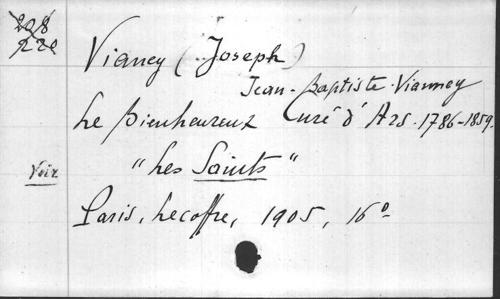 208
220
Vianey (Joseph)
Jean-Baptiste Vianney
Le Bienheureux Curé d'Ars. 1786-1859.
Voir "Les Saints"
Paris, Lecoffre, 1905, 16°